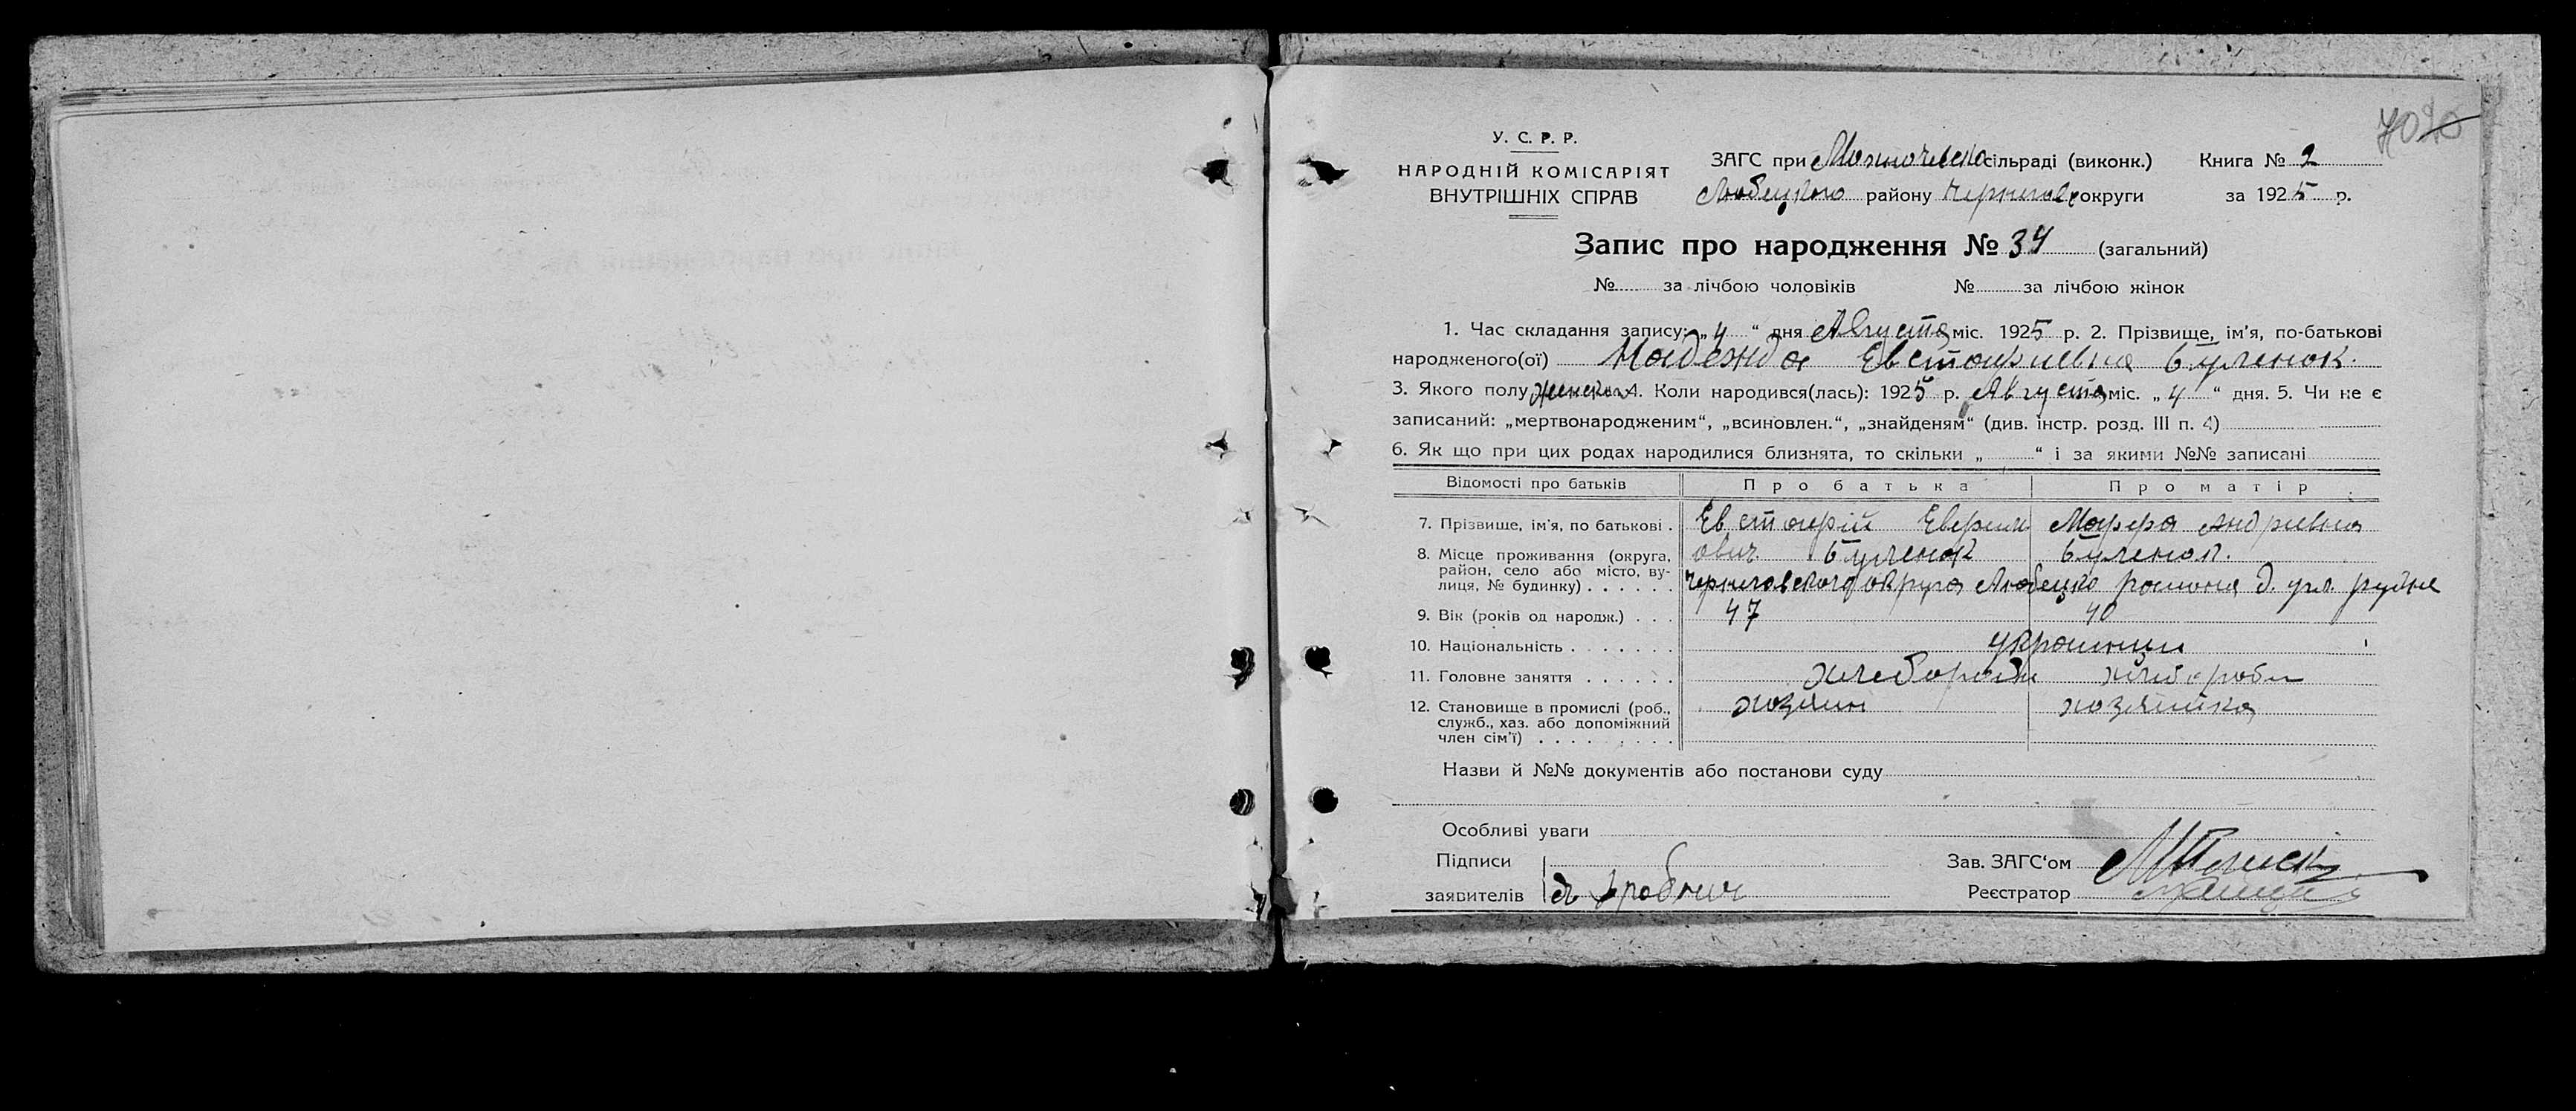 У. С. Р. Р.
НАРОДНІЙ КОМІСАРІЯТ
ВНУТРІШНІХ СПРАВ
ЗАГС при сільраді (виконк.) Книга № 2
Любецкого району Чернигов округи за 1925 р.
Запис про народження № 34 (загальний)
№ за лічбою чоловіків № за лічбою жінок
1. Час складання запису: „4“ дня Августа міс. 1925 р. 2. Прізвище, ім'я, по-батькові
народженого(ої) Надежда Евстафиевна Буленок.
3. Якого полу женскаго 4. Коли народився(лась): 1925 р. Августа міс. „4“ дня. 5. Чи не є
записаний: „мертвонародженим“, „всиновлен.“, „знайденям“ (див. інстр. розд. III п. 4)
6. Як що при цих родах народилися близнята, то скільки „ “ і за якими №№ записані
Відомості про батьків Про батька Про матір
7. Прізвище, ім'я, по батькові . Евстафій Марфа Андриевна
8. Місце проживання (округа, ович Буленок Буленок.
район, село або місто, вулиця, № будинку) . . . . . . Черниговского округа Любецко района д.
9. Вік (років од народж.) . . . 47 40
10. Національність . . . . . . . украинци
11. Головне заняття . . . . . . хлебороби хлебороби
12. Становище в промислі (роб., хозяин хозяйка
служб., хаз. або допоміжний
член сім'ї) . . . . . . . . .
Назви й №№ документів або постанови суду
Особливі уваги
Підписи Зав. ЗАГС'ом
заявителів Реєстратор